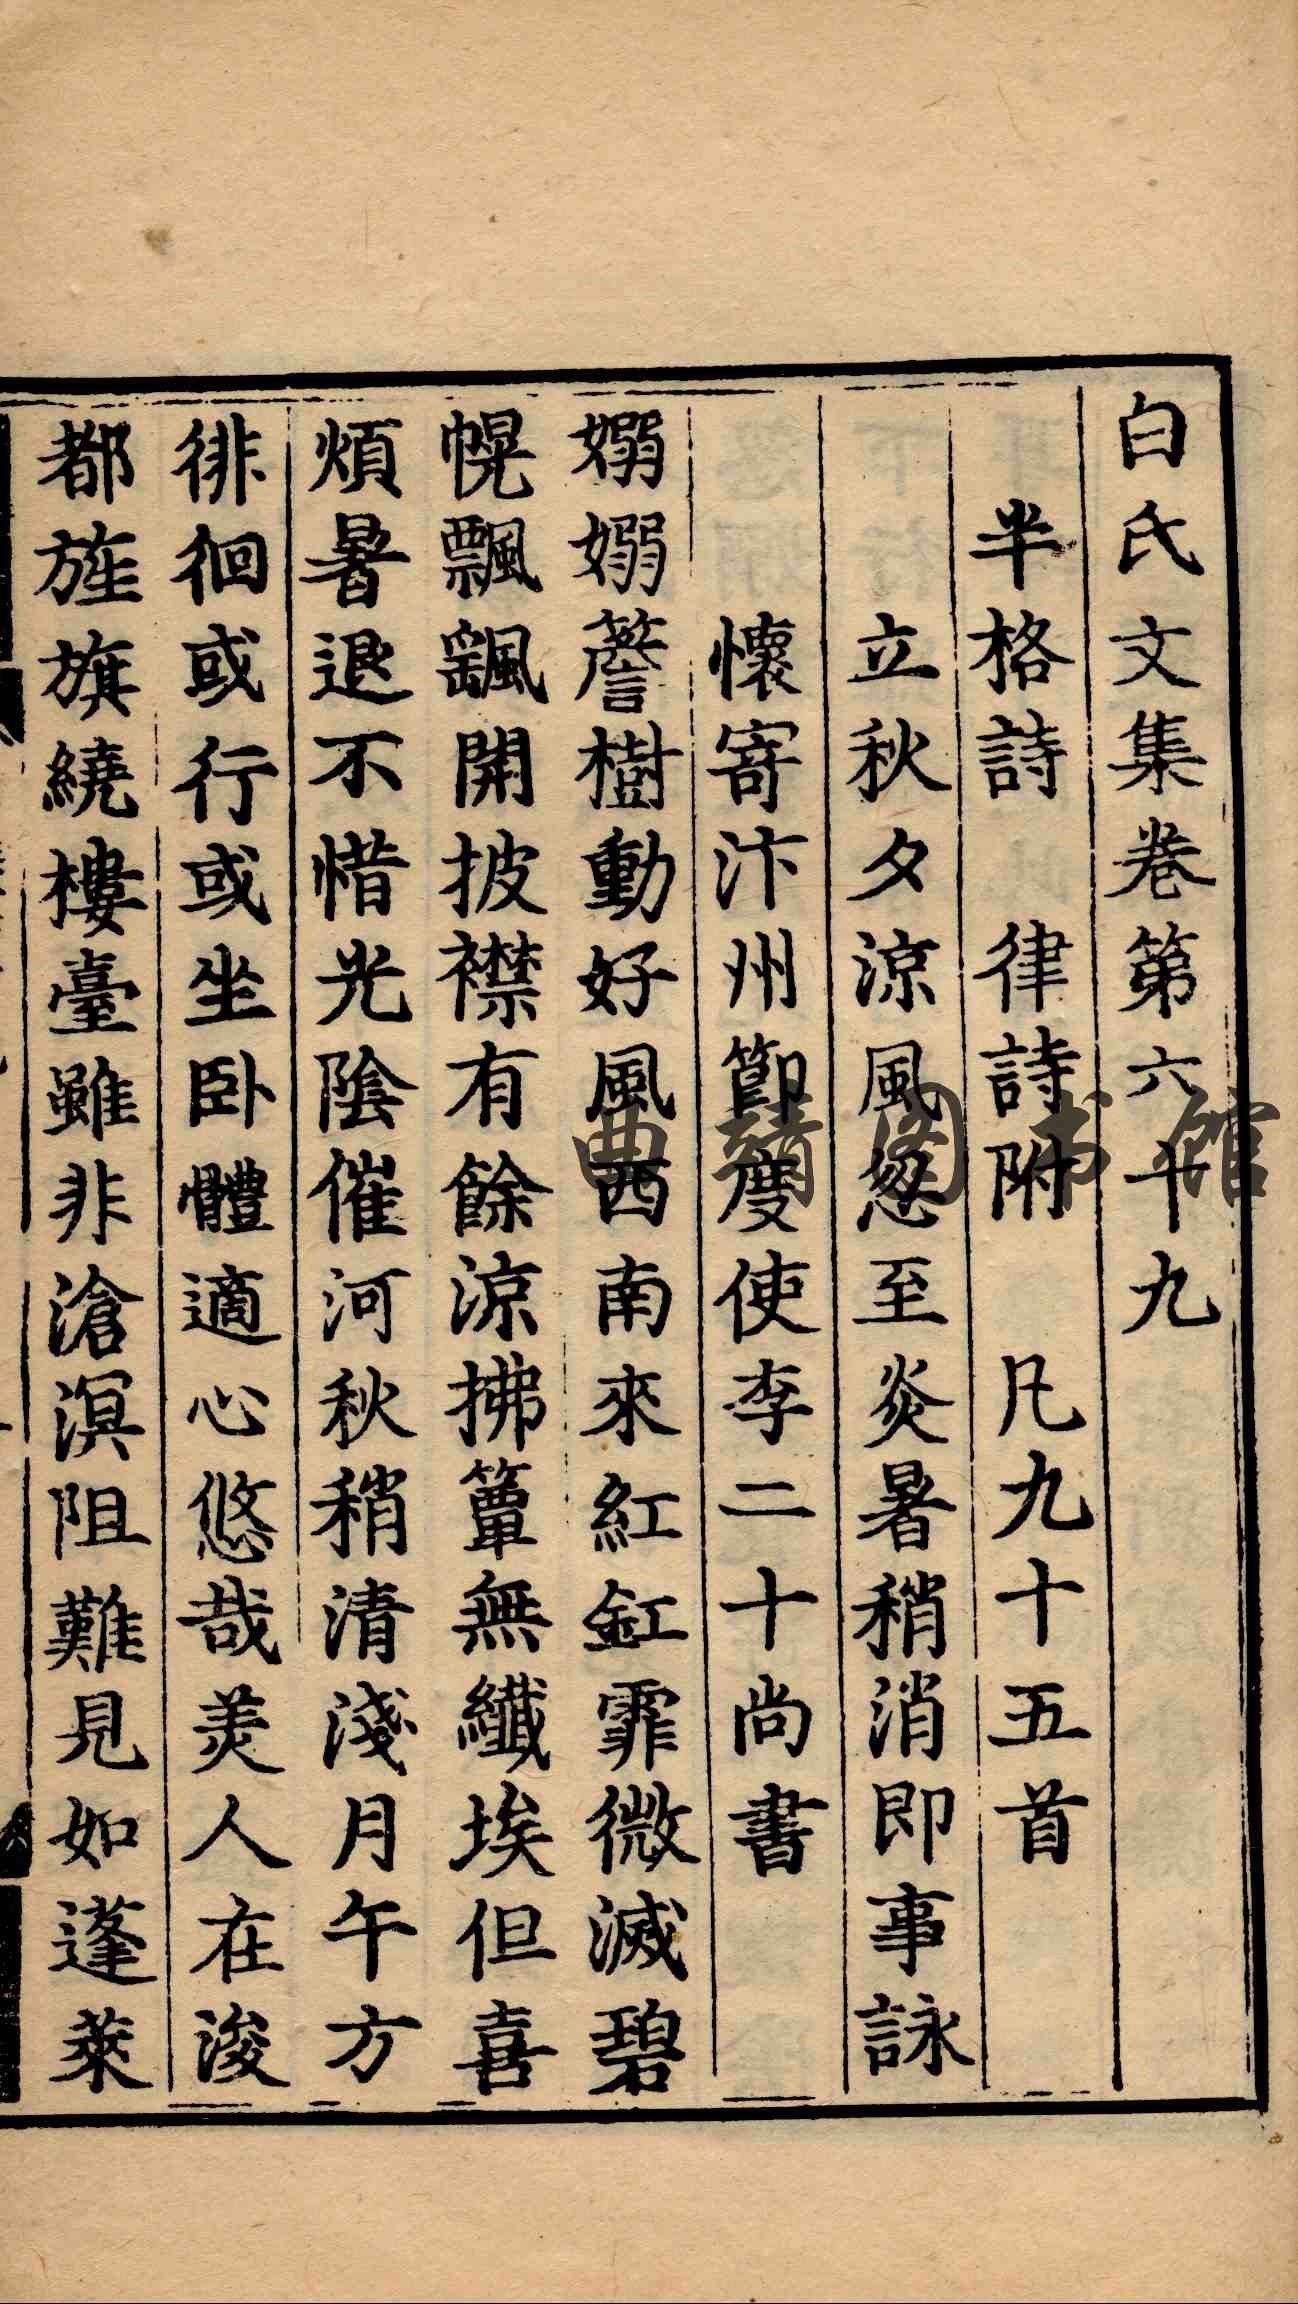 白氏文集卷第六十九
半格詩 律詩附 凡九十五首
立秋夕涼風忽至炎暑稍消即事詠
懷寄汴州節度使李二十尚書
嫋嫋簷樹動好風西南來紅釭霏微滅碧
幌飄颻開披襟有餘涼拂簟無纖埃但喜
煩暑退不惜光陰催河秋稍清淺月午方
徘徊或行或坐卧體適心悠哉美人在浚
都旌旗繞樓臺雖非滄溟阻難見如蓬萊
典籍图书馆